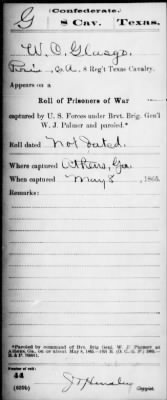 Confederate.
G 8 Cav. Texas.
W. O. Glasgo
Priv., Co. A, 8 Reg't Texas Cavalry.
Appears on a
Roll of Prisoners of War
captured by U. S. Forces under Brvt. Brig. Gen'l
W. J. Palmer and paroled.*
Roll dated
Not dated.
Where captured Athens, Ga.
When captured May 8, 1865.
Remarks:
*Paroled by command of Bvt. Brig. Genl. W. J. Palmer at
Athens, Ga., on or about May 8, 1865.
Number of roll:
44
(639b) Copyist.